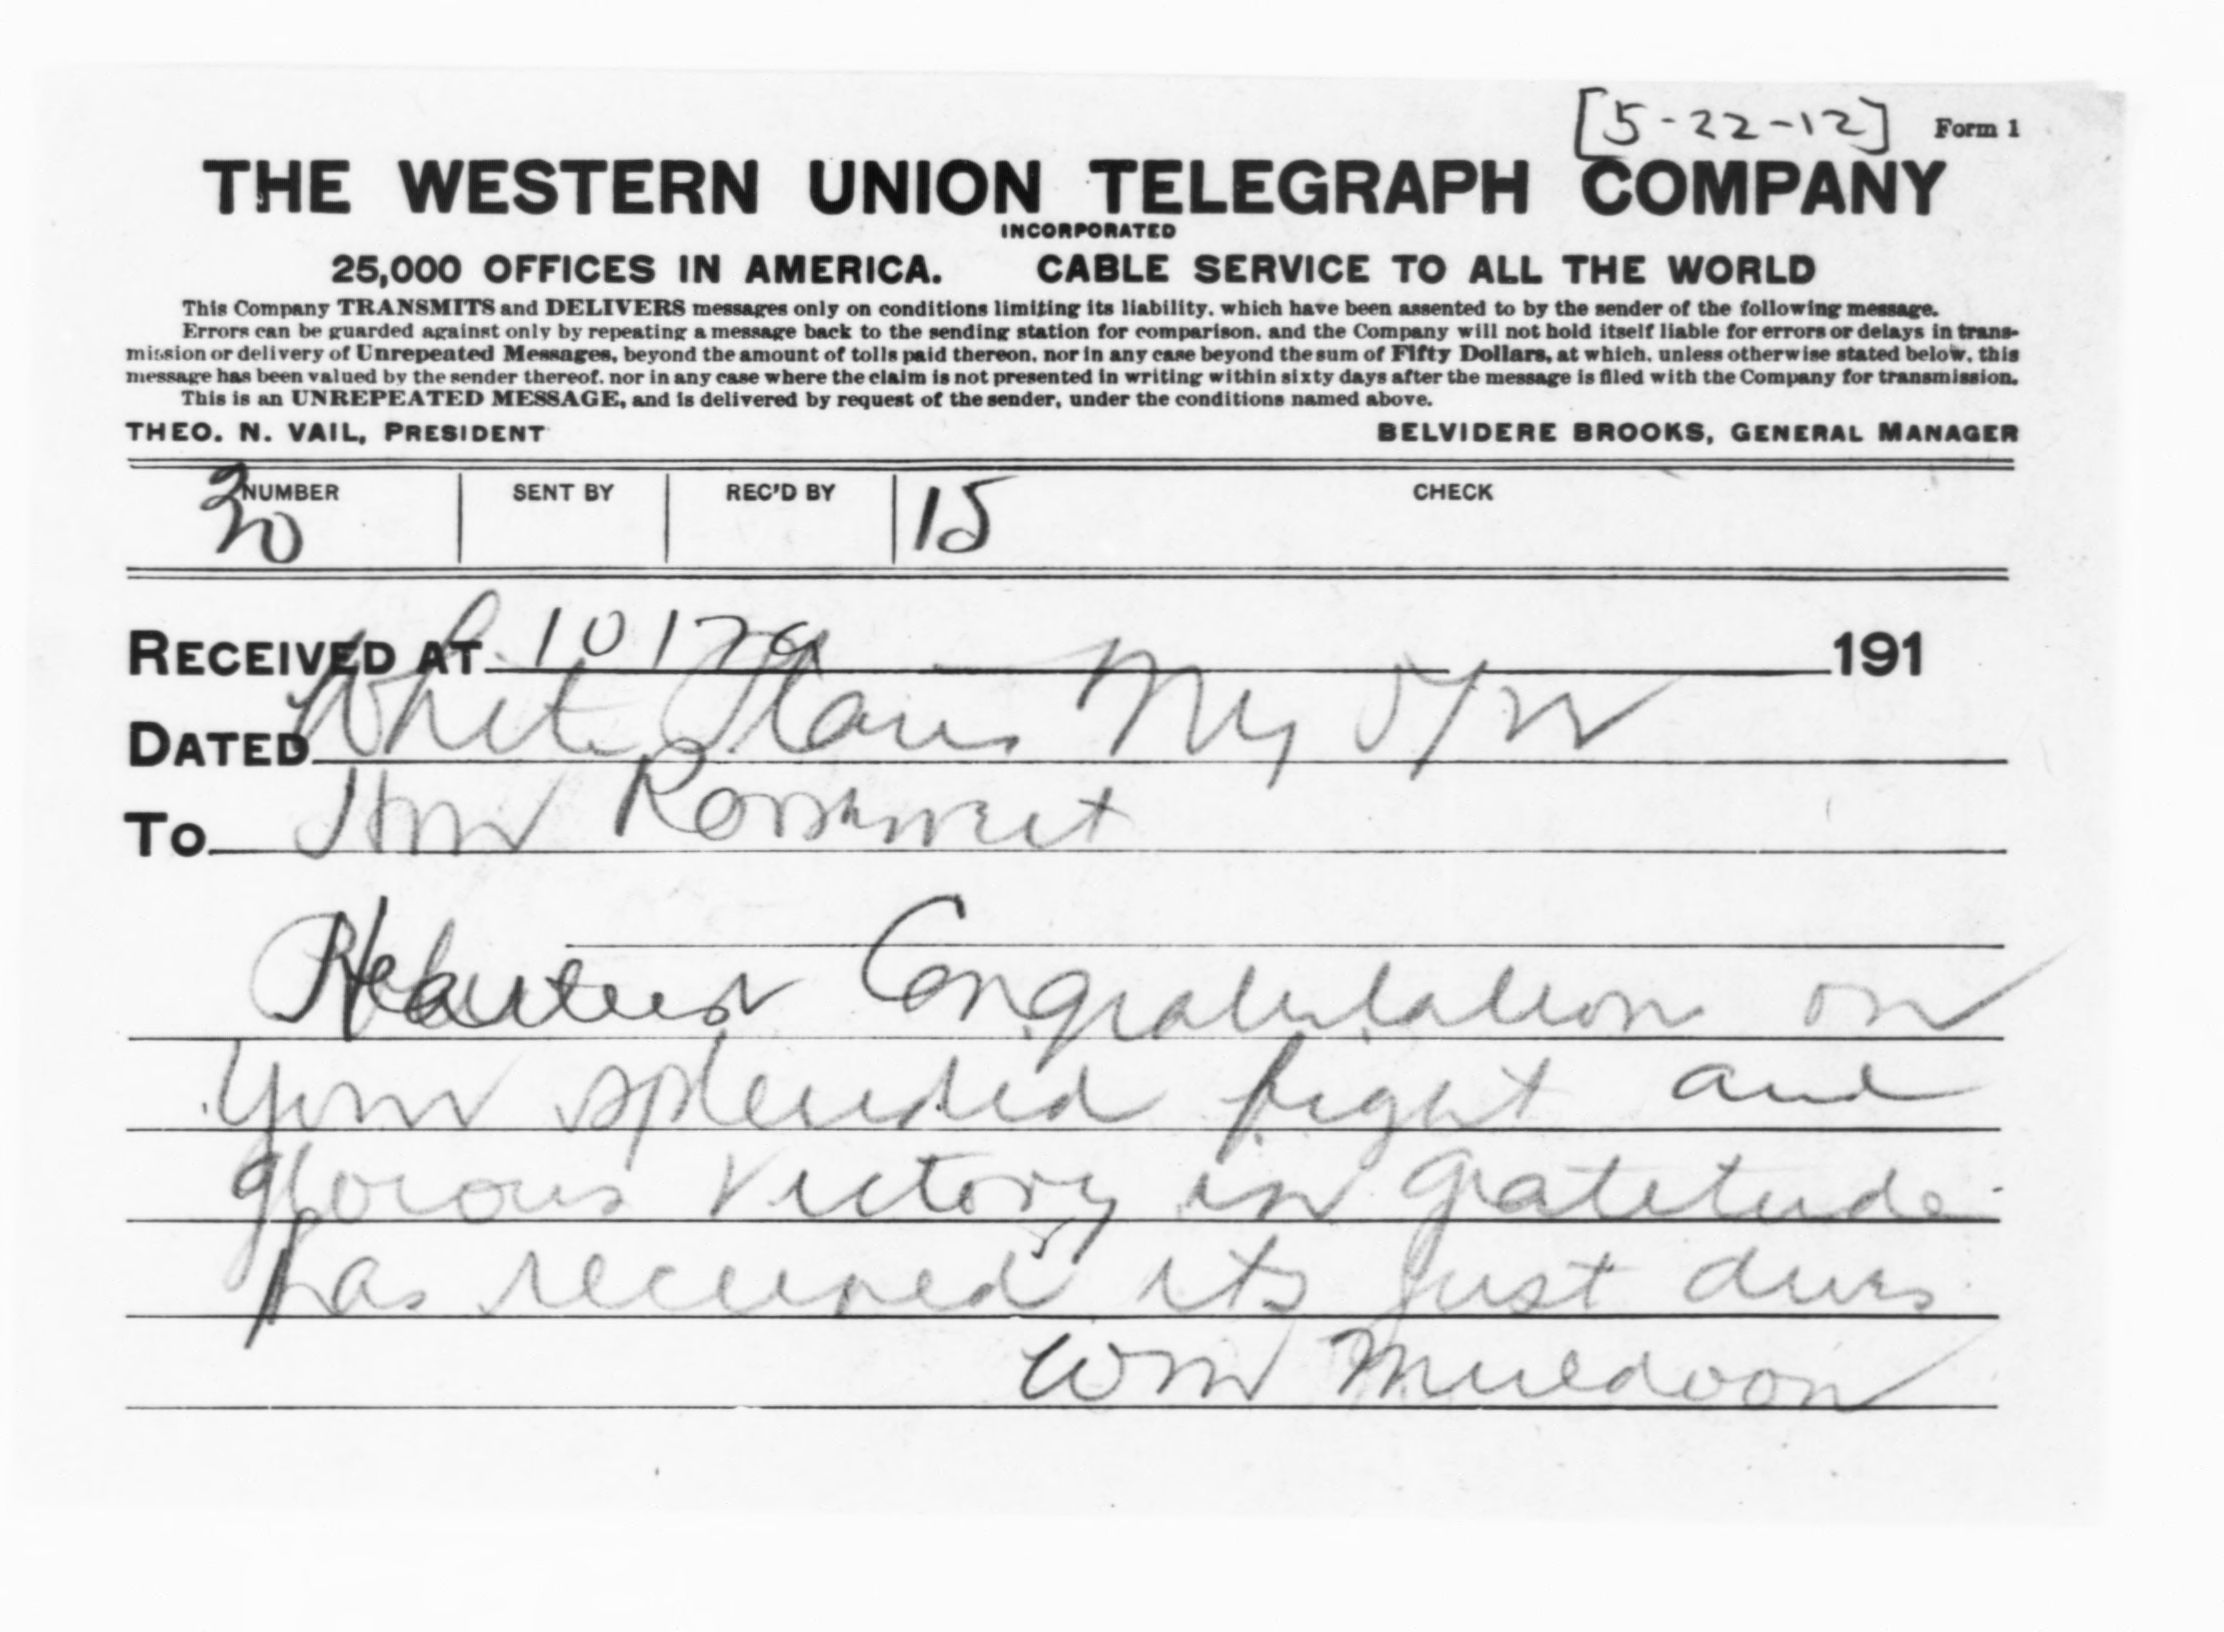 [5-22-12] Form 1
THE WESTERN UNION TELEGRAPH COMPANY
INCORPORATED
25,000 OFFICES IN AMERICA. CABLE SERVICE TO ALL THE WORLD
This Company TRANSMITS and DELIVERS messages only on conditions limiting its liability, which have been assented to by the sender of the following message.
Errors can be guarded against only by repeating a message back to the sending station for comparison, and the Company will not hold itself liable for errors or delays in trans-
mission or delivery of Unrepeated Messages, beyond the amount of tolls paid thereon, nor in any case beyond the sum of Fifty Dollars, at which, unless otherwise stated below, this
message has been valued by the sender thereof, nor in any case where the claim is not presented in writing within sixty days after the message is filed with the Company for transmission.
This is an UNREPEATED MESSAGE, and is delivered by request of the sender, under the conditions named above.
THEO. N. VAIL, PRESIDENT BELVIDERE BROOKS, GENERAL MANAGER
NUMBER SENT BY REC'D BY CHECK
15
RECEIVED AT 1017a 191
DATED White Plains Ny
To Roosevelt
Congratulation on
your splendid fight and
glorous victory in gratitude
has received its just dues
Wm Muldoon